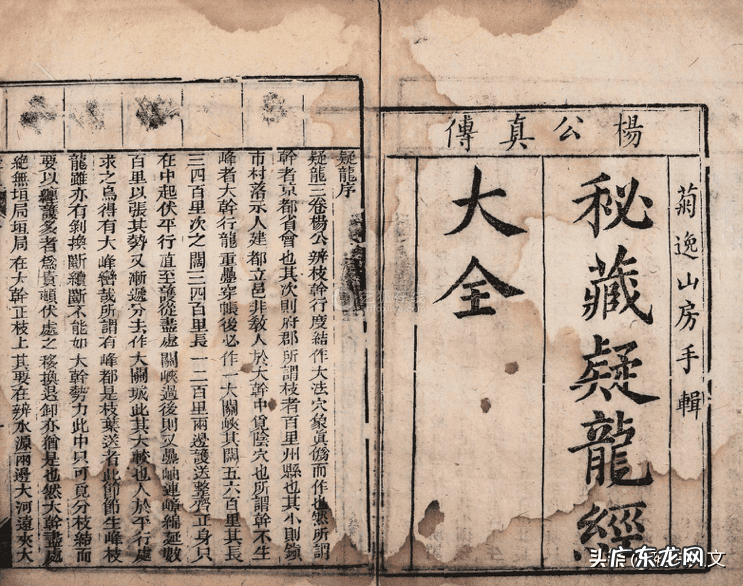 楊公真傳
菊逸山房手輯
秘藏疑龍經
大全
疑龍序
疑龍三卷楊公辨枝幹行度結作大法穴象眞僞而作也然所謂
幹者京都省會也其次則府郡所謂枝者百里州縣也其小則鎮
市村落示人建都立邑非教人於大幹中覓陰穴也所謂幹不生
峰者大幹行龍重疊穿帳後必作一大關峽其關五六百里其長
三四百里次之關三四百里長一二百里兩邊護送整齊正身只
在中起伏平行直至護從盡處關峽過後則又疊岫連峰綿延數
百里以張其勢又漸遞分去作大關城此其大較也人於平行處
求之烏得有大峰巒哉所謂有峰都是枝葉送者此節節生峰枝
龍雖亦有剝換斷續斷不能如大幹勢力此中只可覓分枝結而
要以纏護多者為貴頓伏處之移換退卸亦猶是也然大幹盡處
絕無垣局垣局在大幹正枝上其要在辨水源兩邊大河遠夾大
头
广东龙网
文